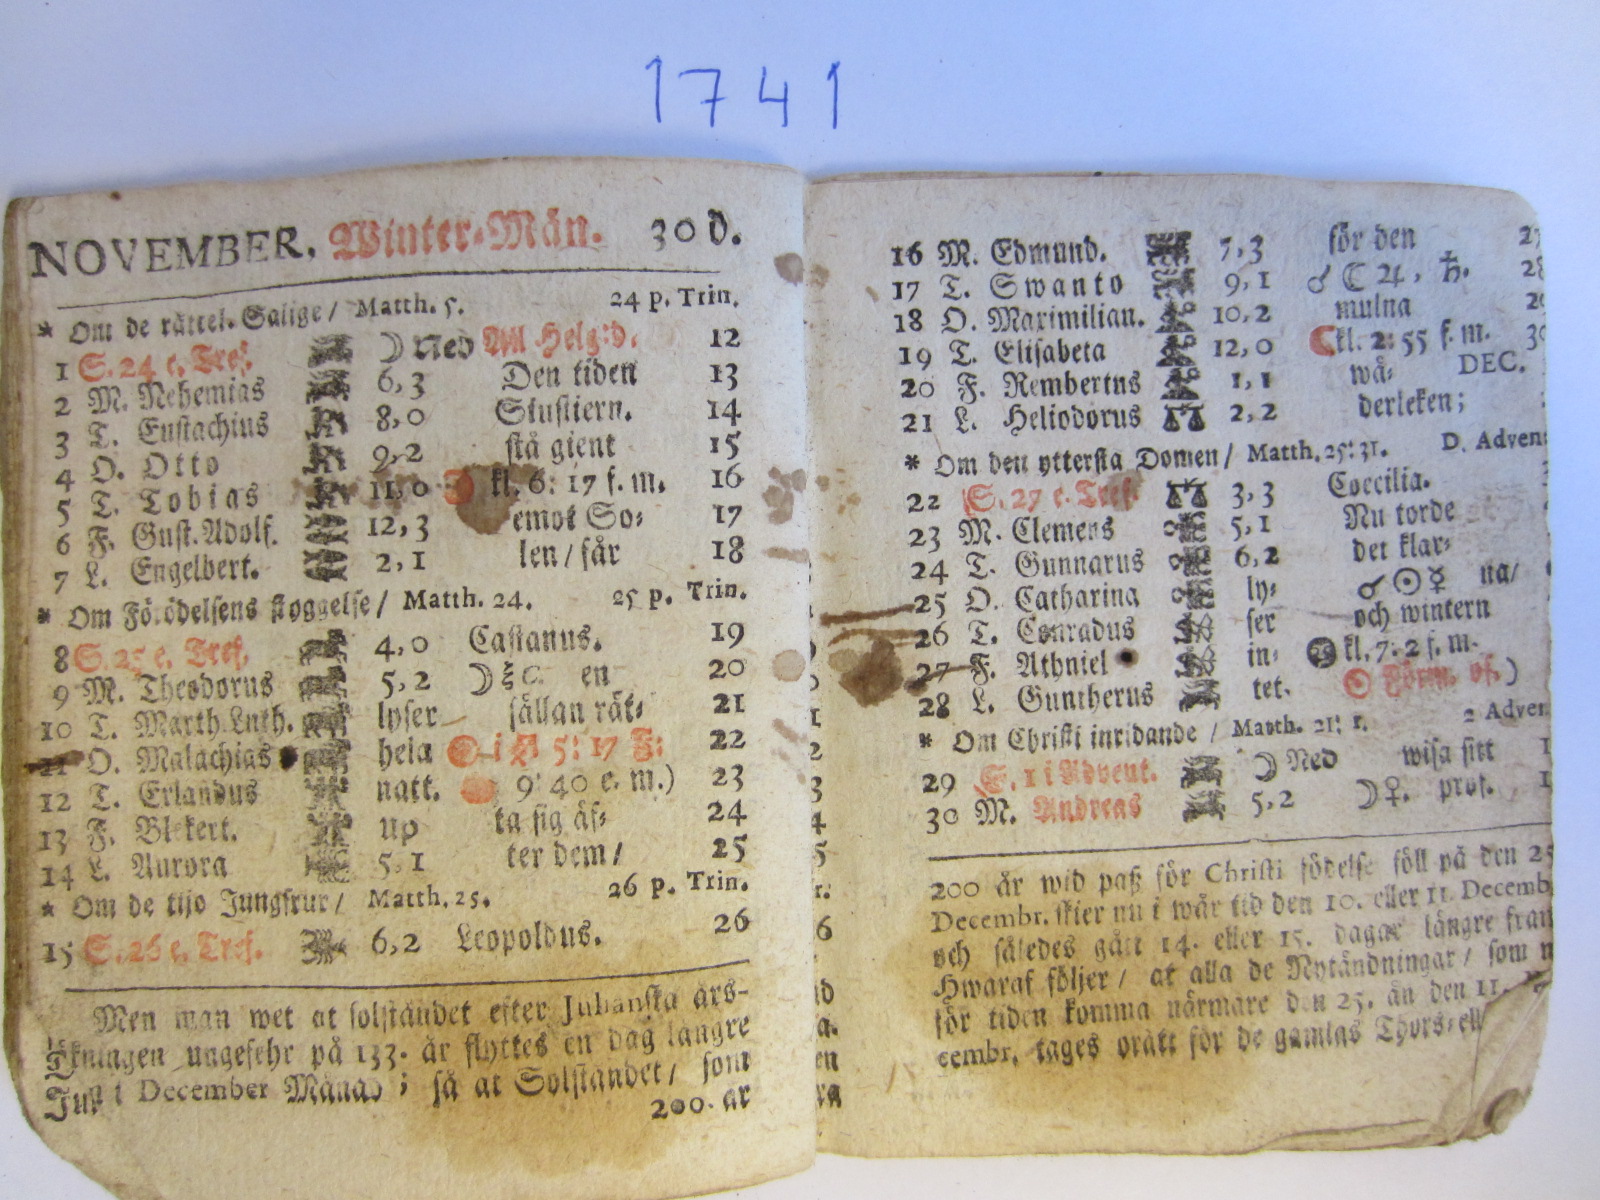 1741
NOVEMBER. Winter-Mån. 30 d.
* Om de rättel. Salige / Matth. 5. 24 p. Trin.
1 S. 24 e. Tref. ☽ Ned All Helg:d. 12
2 M. Nehemias 6, 3 Den tiden 13
3 T. Eustachius 8, 0 Siustiern. 14
4 O. Otto 9, 2 stå gient 15
5 T. Tobias 11, 0 kl. 6: 17 f. m. 16
6 F. Gust. Adolf. 12, 3 emot So- 17
7 L. Engelbert. 2, 1 len / får 18
* Om Förödelsens styggelse / Matth. 24. 25 p. Trin.
8 S. 25 e. Tref. 4, 0 Castanus. 19
9 M. Theodorus 5, 2 ☽ en 20
10 T. Marth. Luth. lyser sällan rät- 21
11 O. Malachias hela i 5: 17 F: 22
12 T. Erlandus natt. 9: 40 e. m.) 23
13 F. Blekert. up ta sig äf- 24
14 L. Aurora 5, 1 ter dem / 25
* Om de tijo Jungfrur / Matth. 25. 26 p. Trin.
15 S. 26 e. Tref. 6, 2 Leopoldus. 26
Men man wet at solståndet efter Julianska års-
räkningen ungefehr på 133. år flyttes en dag längre
Just i December Månad ; så at Solståndet / som
200. år
16 M. Edmund. 7, 3 för den 27
17 T. Swanto 9, 1 ☌ ☾ ♃, ♄. 28
18 O. Maximilian. 10, 2 mulna 29
19 T. Elisabeta 12, 0 ☾ kl. 2: 55 f. m. 30
20 F. Rembertus 1, 1 wä- DEC.
21 L. Heliodorus 2, 2 derleken;
* Om den yttersta Domen / Matth. 25: 31. D. Advent
22 S. 27 e. Tref. 3, 3 Coecilia.
23 M. Clemens 5, 1 Nu torde
24 T. Gunnarus 6, 2 det klar-
25 O. Catharina ly- ☌ ☉ ☿ na /
26 T. Conradus ser och wintern
27 F. Athniel in- kl. 7. 2 f. m.
28 L. Guntherus tet. ☉ Förm. of.)
* Om Christi inridande / Matth. 21: 1. 2 Adven
29 S. 1 i Advent. ☽ Ned wisa sitt 1
30 M. Andreas 5, 2 ☽ ♀. prof. 1
200 år wid paß för Christi födelse föll på den 25
Decembr. skier nu i wår tid den 10. eller 11. Decemb
och således gått 14. eller 15. dagar längre fram
Hwaraf följer / at alla de Nytändningar / som n
för tiden komma närmare den 25. än den 11.
cembr. tages orätt för de gamlas Thors- ell